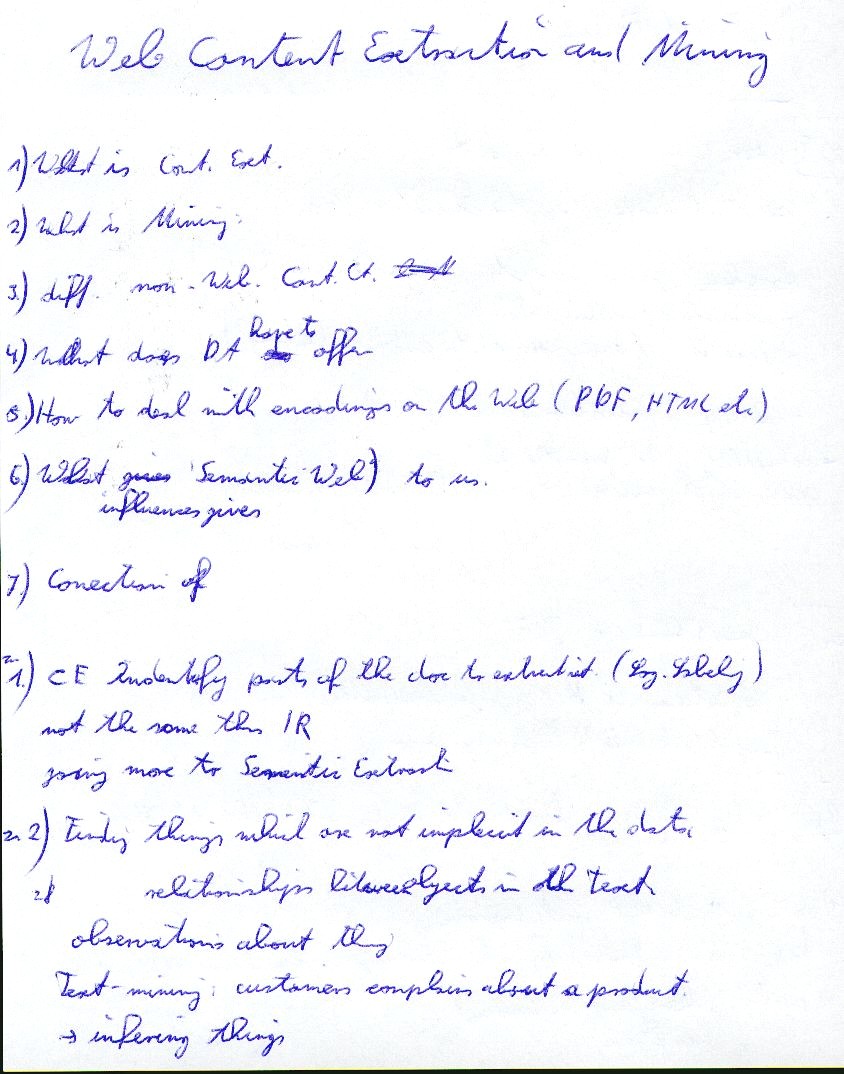 Web Content Extraction and Mining
1) What is Cont. Ext.
2) What is Mining.
3.) diff. non-Web. Cont. Ct.
4) What does DA hope to offer
5.) How to deal with encodings on the Web (PDF, HTML etc.)
6) What Semantic Web) to us.
influences gives
7) Conection of
zu 1.) CE Indentify parts of the doc to extract
not the same than IR
going more to Semantic Extracti
zu 2) Finding things which are not implicit in the data,
relationships between objects in the text.
observations about thing
Text-mining: customers complains about a product.
→ infering things